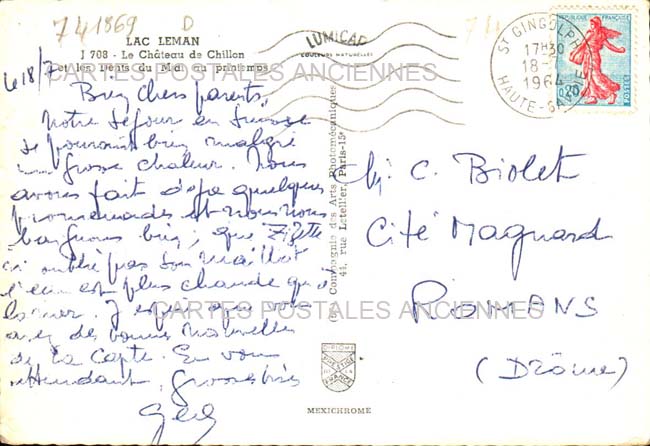 741869 D
LAC LEMAN
J 708 - Le Château de Chillon
et les Dents du Midi au printemps
LUMICAP
COULEURS NATURELLES
ST GINGOLPH
17H30
18-7
1964
HAUTE-SAVOIE
REPUBLIQUE FRANÇAISE
0,20
POSTES
CARTES POSTALES ANCIENNES
le 18/7
Bien chers parents,
Notre séjour en Suisse
se poursuit bien malgré
grosse chaleur. Nous
avons fait déjà quelques
promenades et nous nous
baignons bien, que Zizette
n'oublie pas son maillot
l'eau est plus chaude qu'à
la mer. J'espère que vous
avez des bonnes nouvelles
de la Capte. En vous
attendant, grosses bises
Compagnie des Arts Photomécaniques
44, rue Letellier, Paris-15e
C. Biolet
Cité Magnard
ROMANS
(Drôme)
CARTES POSTALES ANCIENNES
MEXICHROME